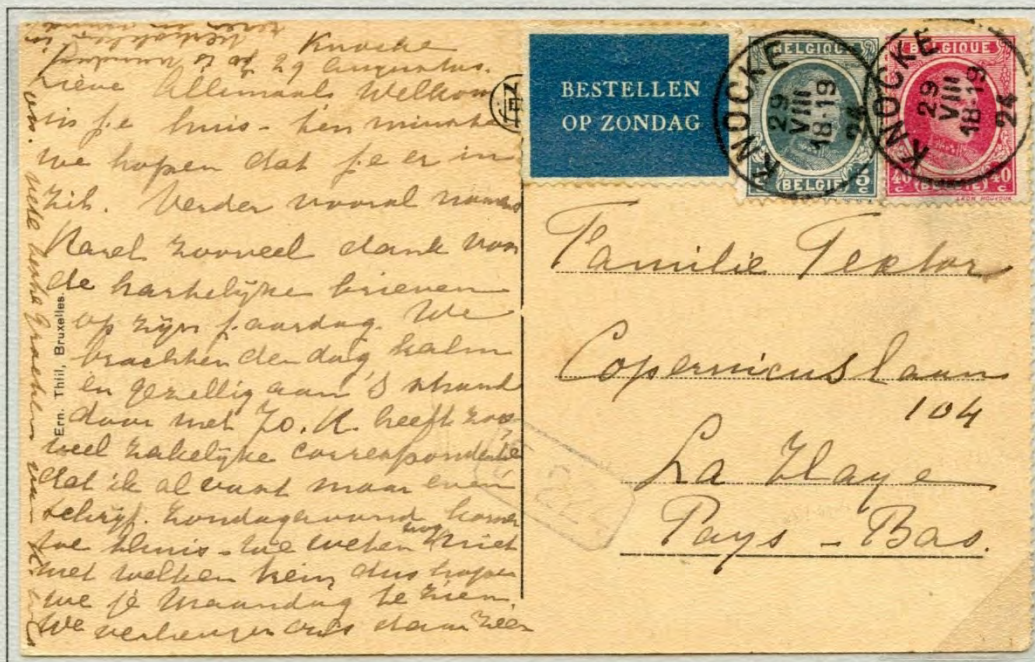 Knocke
29 Augustus.
Lieve Allemaal Welkom
je huis - ten minste
we hopen dat je er in
zit. Verder vooral namens
Karel zooveel dank voor
de hartelijke brieven
op zijn jaardag. We
brachten den dag kalm
en gezellig aan 't strand
door met Zo. K. heeft zoo
veel zakelijke correspondentie
dat ik alvast maar even
schrijf. Zondagavond komen
we thuis - we weten nog niet
met welken trein dus hopen
we je Maandag te zien.
We verheugen ons daar zeer
Ern. Thill, Bruxelles.
BESTELLEN
OP ZONDAG
BELGIQUE
BELGIË
KNOCKE
29
VIII
18-19
24
BELGIQUE
40 c BELGIË 40 c
KNOCKE
29
VIII
18-19
24
Familie Tektor
Copernicuslaan
104
La Haye
Pays - Bas.